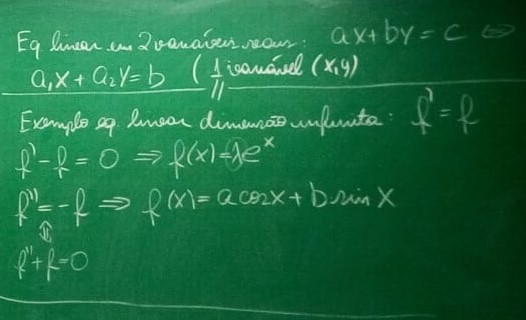 Eq linear em 2 variáveis reais: ax+by=c ⇔
a₁x + a₂y=b (1 variável (x,y)
Exemplo eq. linear dimensão infinita: f' = f
f' - f = 0 ⇒ f(x)=λeˣ
f'' = -f ⇒ f(x)= a cos x + b sin x
⇕
f''+f=0